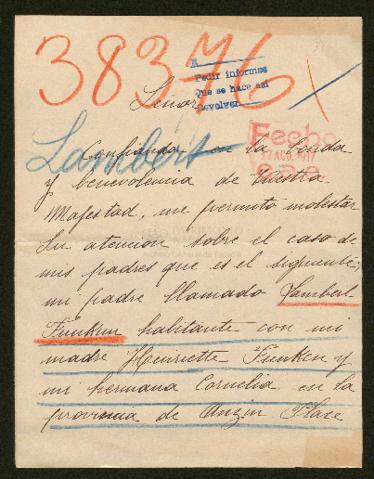 38376
A
Pedir informes
Que se hace así
Devolver
Señor
Lambert
Confiando en la bondad
y benevolencia de Vuestra
Majestad, me permito molestar
su atencion sobre el caso de
mis padres que es el siguiente;
mi padre llamado Lambert
Funken habitante con mi
madre Henriette Funken y
mi hermana Cornelia en la
provincia de Anzin Place
Fecho
17 AGO. 1917